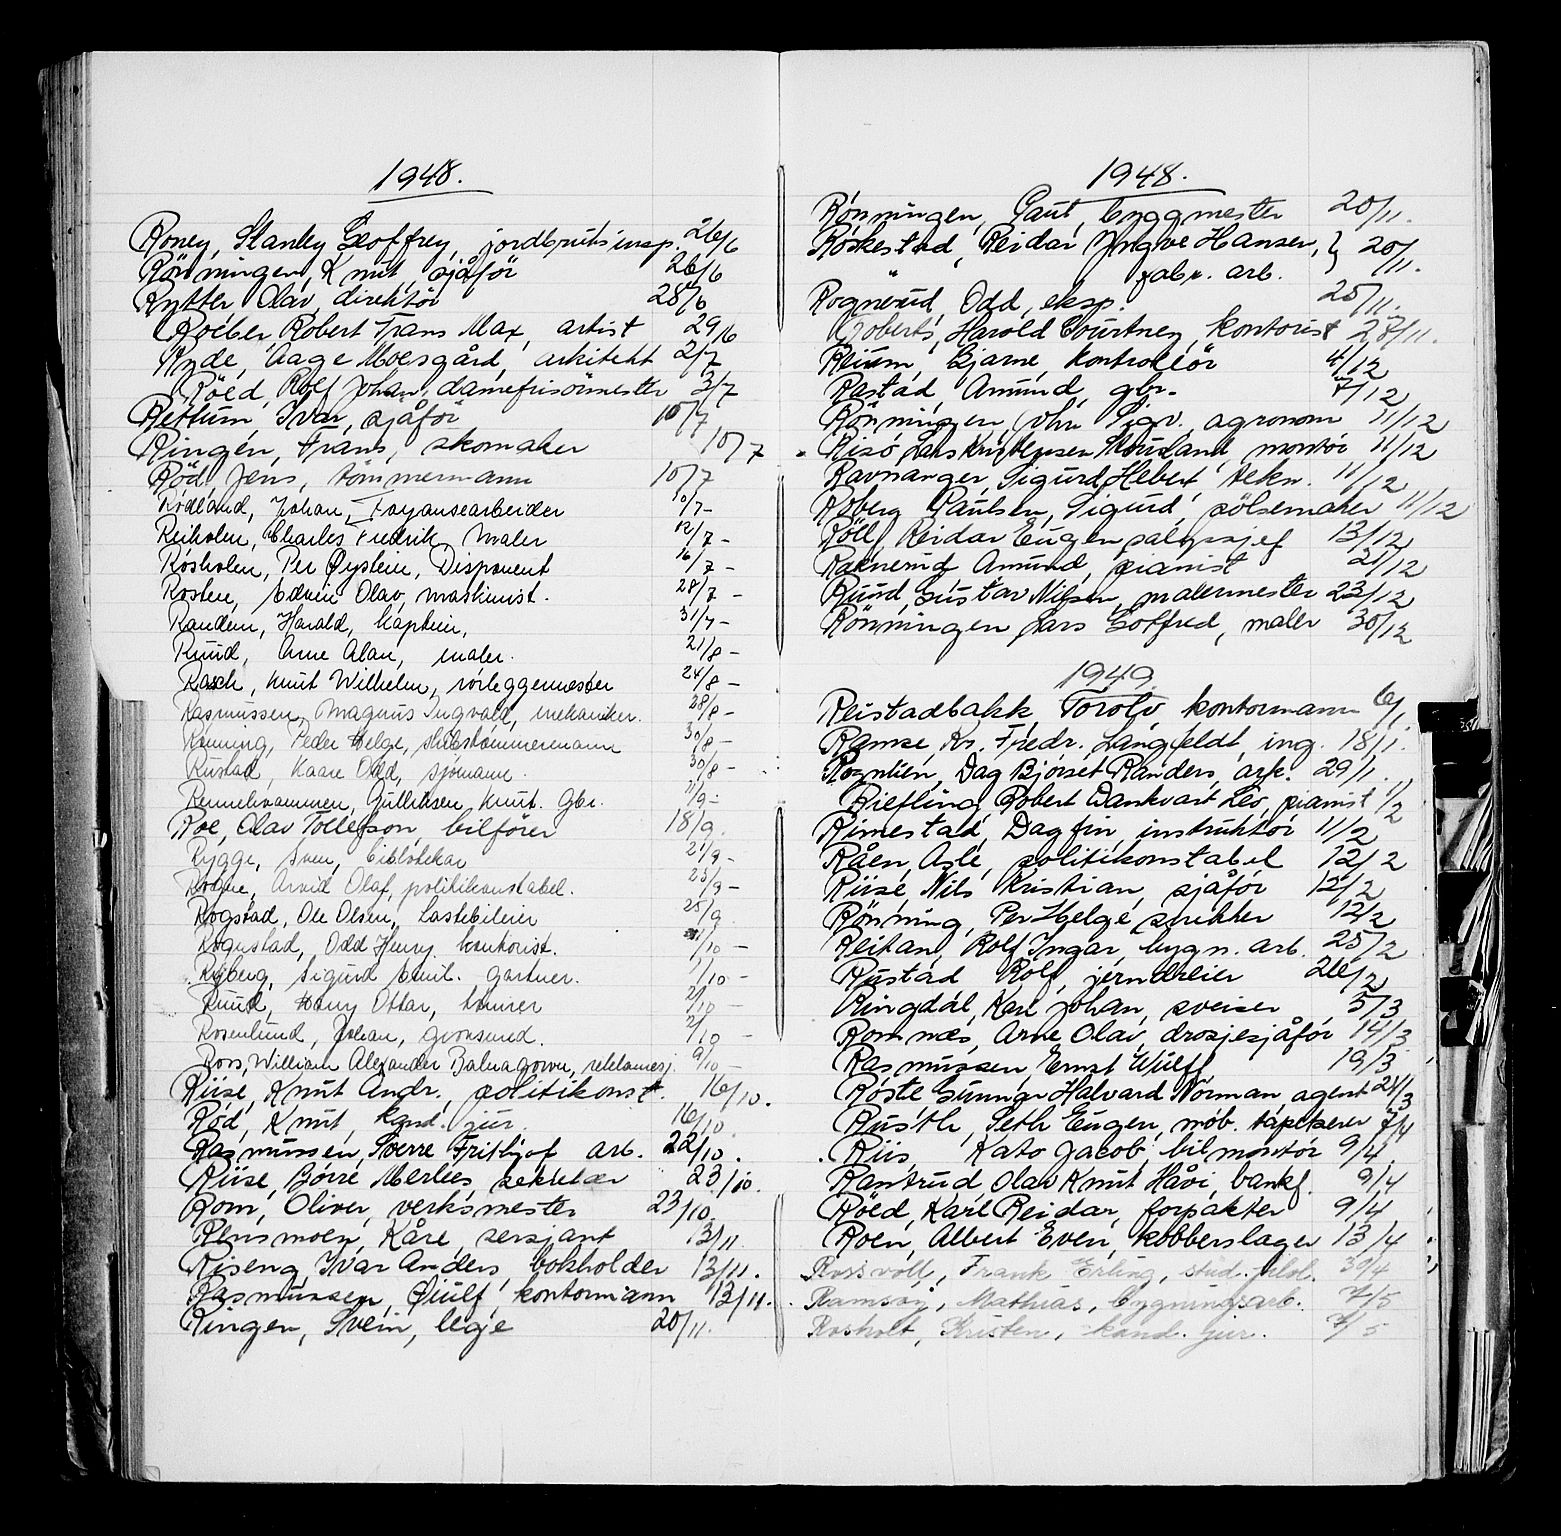 1948.
Roney, Stanley Geoffrey, jordbruksinsp. 26/6
Rönningen, Knut, sjåför 26/6
Rytter Olav, direktör 28/6
Roeber, Robert Frans Max, artist 29/6
Ryde, Aage Moesgård, arkitekt 2/7
Röed, Rolf Johan, damefrisörmester 3/7
Rettum, Ivar, sjåför 10/7
Ringen, Frans, skomaker 10/7
Röd, Jens, tömmermann 10/7
Rødland, Johan, Fayansearbeider 10/7-
Reiholm, Charles Fredrik, Maler 12/7-
Røsholm, Per Øystein, Disponent 16/7-
Rosten, Edvin Olav, maskinist. 28/7-
Randem, Harald, Kaptein, 31/7-
Ruud, Arne Alan, maler. 21/8-
Rasch, Knut Wilhelm, rörleggermester 24/8-
Rasmussen, Magnus Ingvald, mekaniker. 28/8-
Rønning, Peder Helge, skibstømmermann 30/8-
Rustad, Kaare Odd, sjømann. 30/8-
Rennehvammen, Gulliksen Knut. Gbr. 11/9-
Roe, Olav Tollefson, bilförer 18/9.
Rygge, Sven, bibliotekar 21/9-
Rogne, Arvid Olaf, politikonstabel. 23/9-
Rogstad, Ole Olsen, Lastebileier 25/9.
Rognstad, Odd Henry, kontorist. /10-
Ryberg, Sigurd Emil. gartner. 1/10-
Ruud, Harry Ottar, murer 2/10-
Rosenlund, Johan, grovsmed. 2/10-
Ross, William Alexander Balnagown, reklamesj. 9/10-
Riise, Knut Andr., politikonst. 16/10.
Röd, Knut, kand. jur. 16/10
Rasmussen, Sverre Frithjof arb. 22/10.
Riise, Börre Merlies, sekretær 23/10.
Rom, Oliver, verksmester 23/10.
Rensmoen, Kåre, sersjant 13/11.
Riseng, Ivar Anders, bokholder 13/11.
Rasmussen, Øiulf, kontormann 13/11.
Ringen, Svein, lege 20/11.
1948.
Rönningen, Gaut, byggmester 20/11.
Röskestad, Reidar Yngve Hansen, } 20/11.
fabr. arb.
Rognerud, Odd, eksp. 25/11.
Roberts, Harold Courtney, kontorist 27/11.
Reium, Bjarne, kontrollör 4/12
Rastad, Amund, gbr. 7/12
Rönningen, John Sigv. agronom 11/12
Risö, Lars Kristensen, montör 11/12
Ravnanger, Sigurd Hebert tekn. 11/12
Roberg Paulsen, Sigurd, pölsemaker 11/12
Röll, Reidar Eugen salgssjef 13/12
Raknerud Amund, pianist 21/12
Ruud, Gustav Nilsen, malermester 23/12
Rönningen Lars Gotfred, maler 30/12
1949.
Reistadbakk, Torolv, kontormann 6/1.
Ramse, Kr. Fredr. Langfeldt, ing. 18/1.
Rognlien, Dag Bjørset Randers, ark. 29/1.
Riefling, Robert Dankvart Leo, pianist 1/2
Rimestad, Dagfin, instruktör 11/2
Råen, Asle, politikonstabel 12/2
Riise Nils Kristian, sjåför 12/2
Rönning, Per Helge, snekker 12/2
Reitan, Rolf Ingar, bygn. arb. 25/2
Rustad Rolf, jerndreier 26/2
Ringdal, Karl Johan, sveiser 5/3
Romnæs, Arne Olav, drosjesjåför 14/3
Rasmussen, Ernst Wulff 19/3.
Röste Gunnar Halvard Norman, agent 24/3
Rusth, Seth Eugen, möb. tapetserer 7/4
Riis, Kato Jacob, bilmontör 9/4.
Rantrud, Olav Knut Håvi, bankf. 9/4
Röed, Karl Reidar, forpakter 9/4
Roen, Albert Even, kobberslager 13/4
Rossvoll, Frank Erling, stud. filol. 30/4
Ramsöy, Mathias, bygningsarb. 7/5
Rosholt, Kristen, kand. jur. 7/5